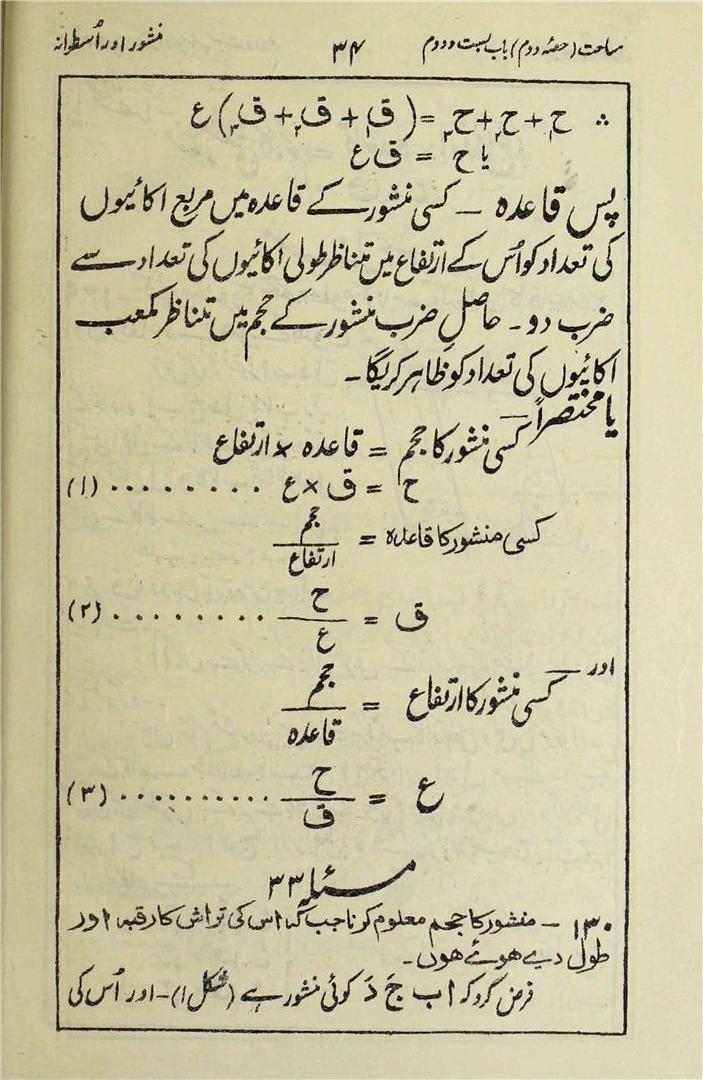 مساحت (حصّہ دوم) باب بست و دوم ۳۴ منشور اور اُسطوانہ
∴ ح₁ + ح₂ + ح₃ = (ق₁ + ق₂ + ق₃) ع
یا ح = ق ع
پس قاعدہ ۔ کسی منشور کے قاعدہ میں مربع اکائیوں
کی تعداد کو اُس کے ارتفاع میں متناظر طولی اکائیوں کی تعداد سے
ضرب دو ۔ حاصلِ ضرب منشور کے حجم میں متناظر مکعب
اکائیوں کی تعداد کو ظاہر کریگا ۔
یا مختصراً —
کسی منشور کا حجم = قاعدہ × ارتفاع
ح = ق × ع ......... (۱)
کسی منشور کا قاعدہ = حجم / ارتفاع
ق = ح / ع ......... (۲)
اور —
کسی منشور کا ارتفاع = حجم / قاعدہ
ع = ح / ق ......... (۳)
مسئلہ ۳۳
۱۳۰ — منشور کا حجم معلوم کرنا جب کہ اس کی تراش کا رقبہ اور
طول دیے ہوئے ہوں ۔
فرض کرو کہ ا ب جَ دَ کوئی منشور ہے (شکل ۱) ۔ اور اُس کی